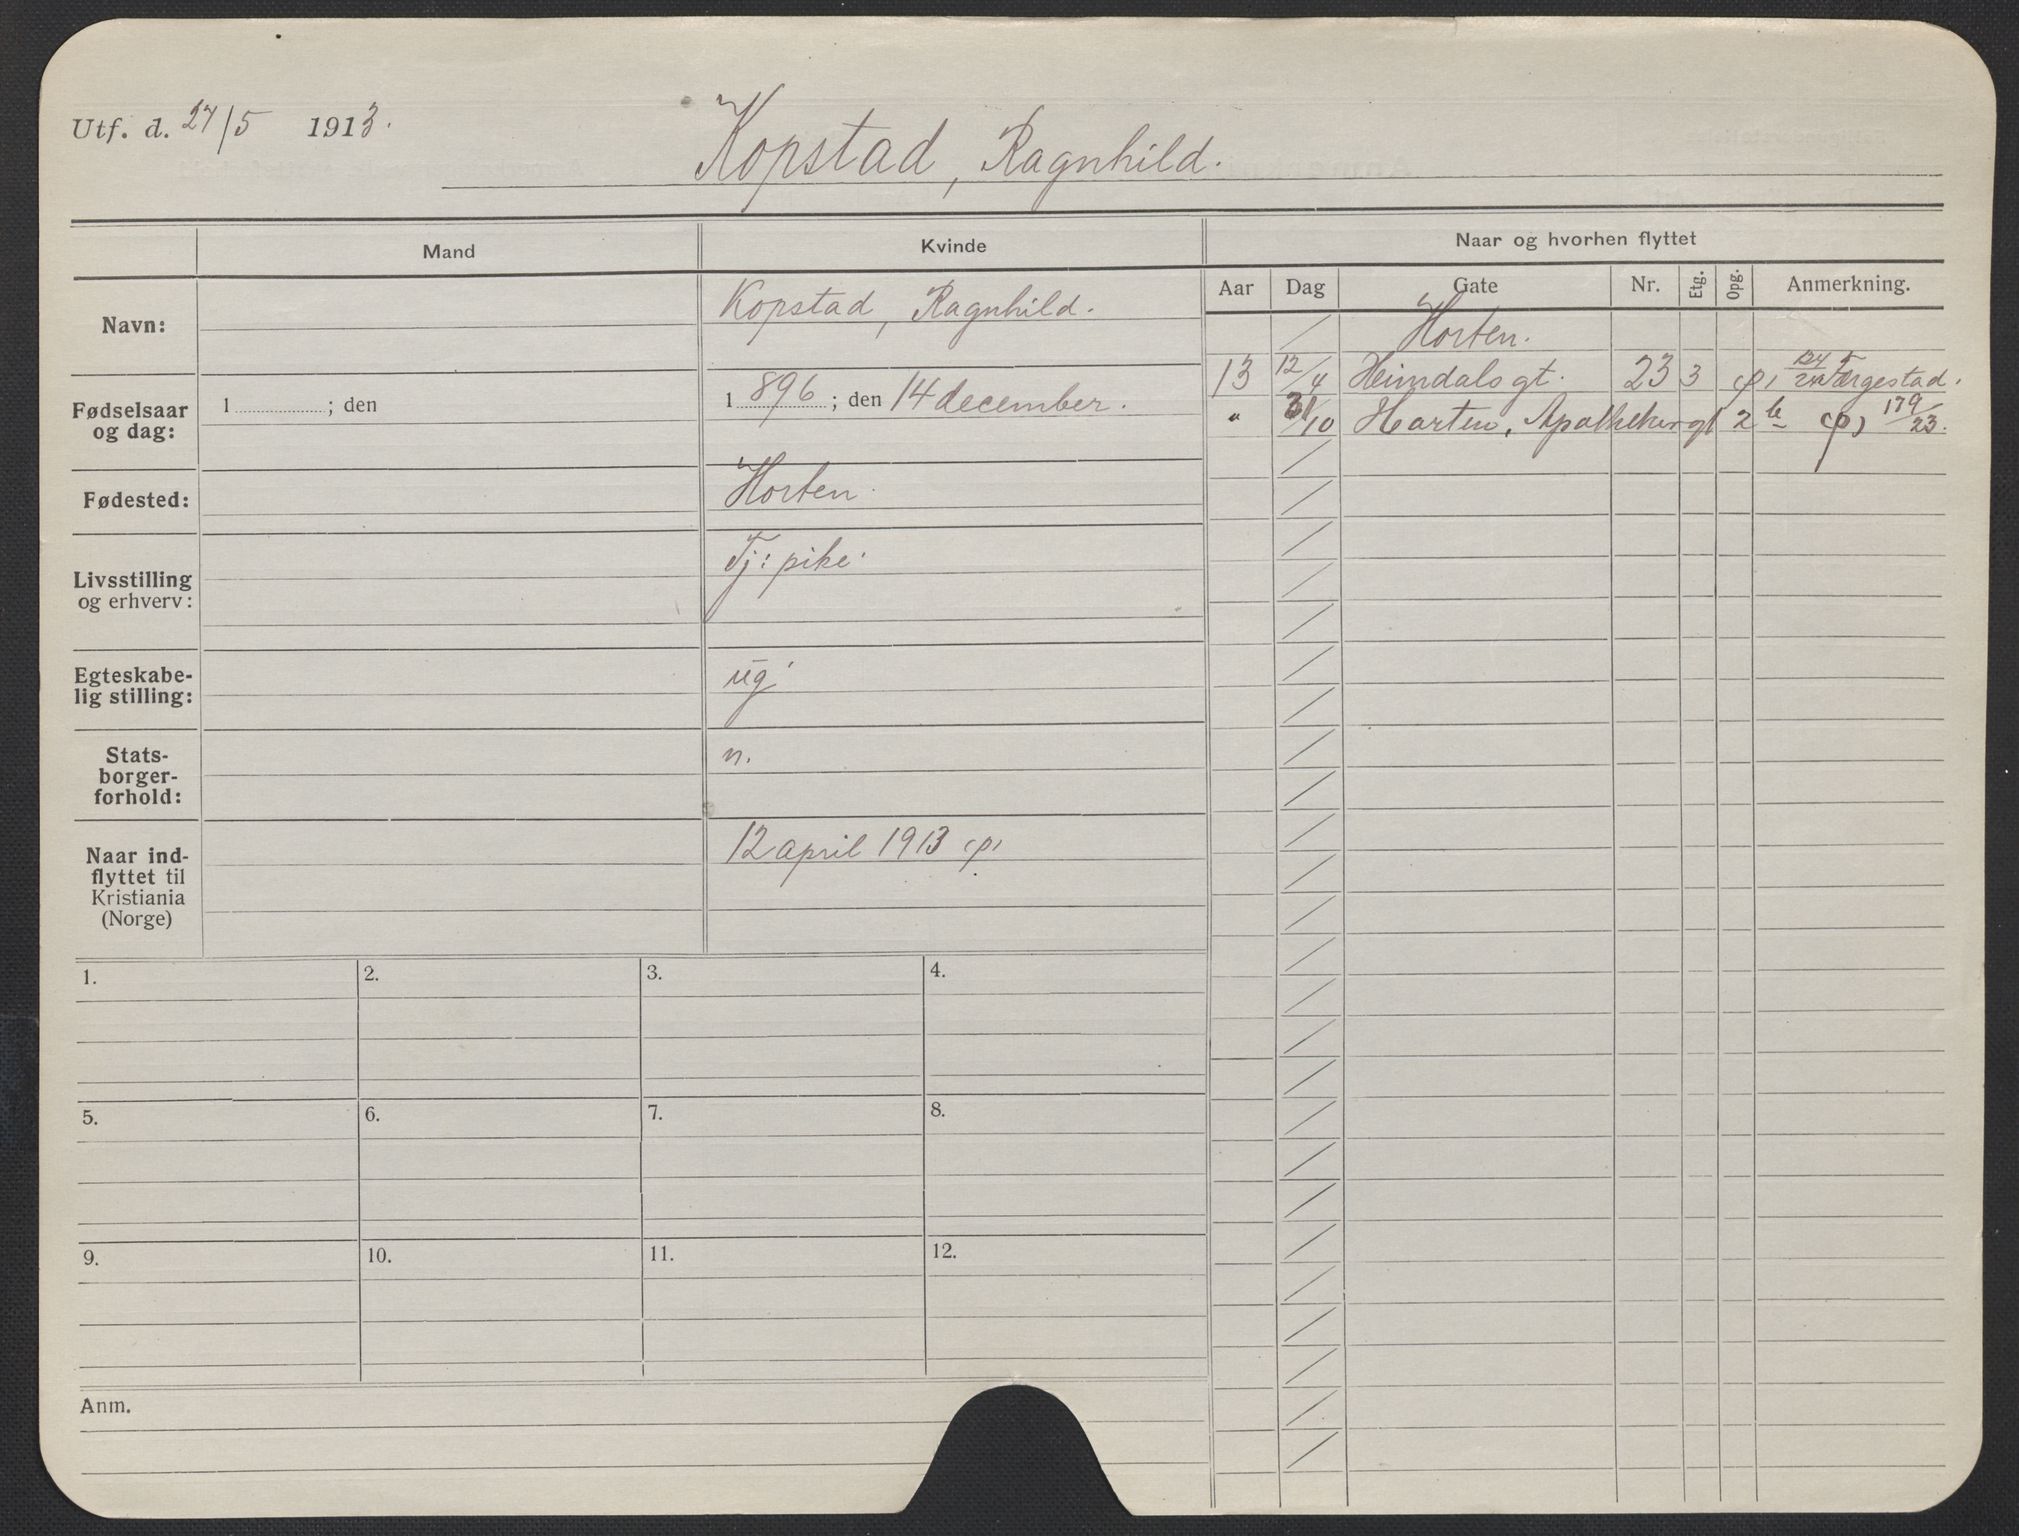 Utf. d. 27/5 1913.
Kopstad, Ragnhild.
Mand
Kvinde
Naar og hvorhen flyttet
Aar Dag Gate Nr. Etg. Opg. Anmerkning.
Navn:
Kopstad, Ragnhild.
Horten.
13 12/4 Heimdalsgt. 23 3 (p)
" 31/10 Horten, Apothekergt 2 b (p) 179/23.
Fødselsaar
og dag:
1 ; den
1 896 ; den 14 december.
Fødested:
Horten.
Livsstilling
og erhverv:
Tj: pike
Egteskabe-
lig stilling:
ug
Stats-
borger-
forhold:
n.
Naar ind-
flyttet til
Kristiania
(Norge)
12 april 1913 (p)
1. 2. 3. 4.
5. 6. 7. 8.
9. 10. 11. 12.
Anm.